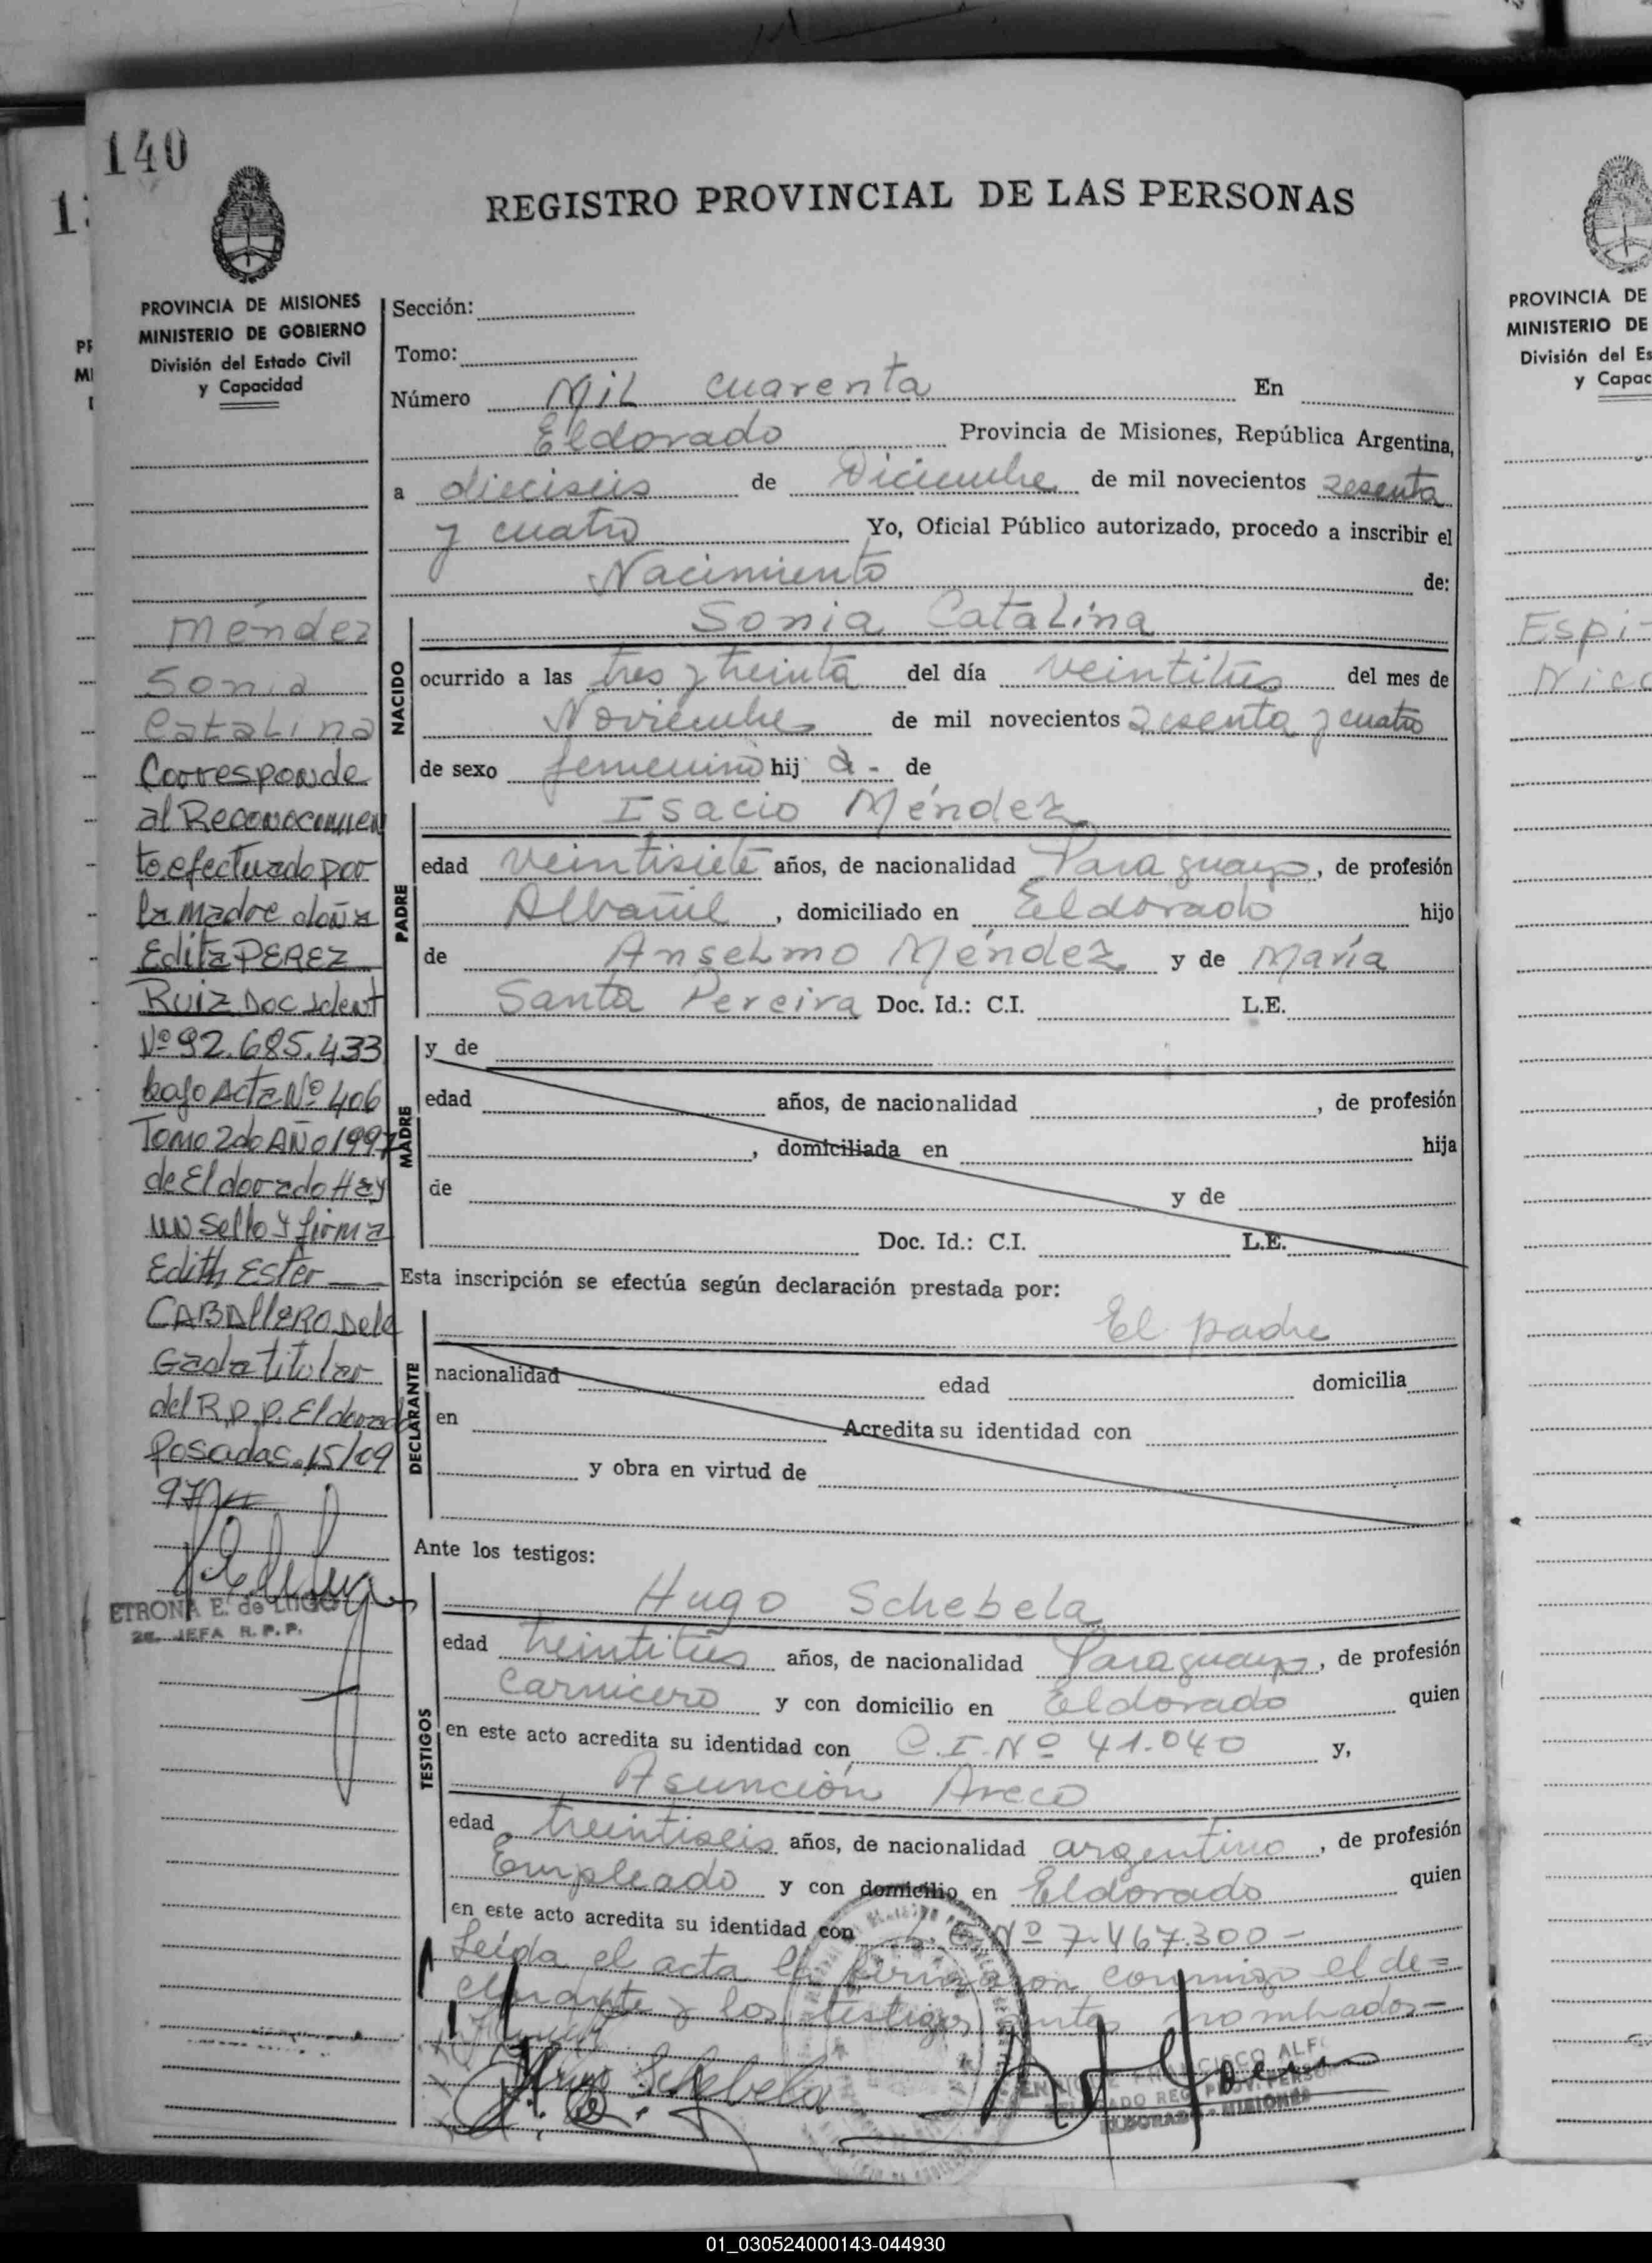 140
REGISTRO PROVINCIAL DE LAS PERSONAS
PROVINCIA DE MISIONES
MINISTERIO DE GOBIERNO
División del Estado Civil
y Capacidad
Méndez
Sonia
Catalina
Corresponde
al Reconocimien
to efectuado por
la madre doña
Edita PEREZ
Ruiz Doc Ident
Nº 92.685.433
bajo Acta Nº 406
Tomo 2do AÑO 1997
de Eldorado Hay
un sello y firma
Edith Ester
CABAllERO Dele
Gada titular
del R.P.P. Eldorado
Posadas 15/09
97
ETRONA E. de LUGO
JEFA R. P. P.
Sección:
Tomo:
Número Mil cuarenta En
Eldorado Provincia de Misiones, República Argentina,
a dieciseis de Diciembre de mil novecientos sesenta
y cuatro Yo, Oficial Público autorizado, procedo a inscribir el
Nacimiento de:
NACIDO
Sonia Catalina
ocurrido a las tres y treinta del día veintitrés del mes de
Noviembre de mil novecientos sesenta y cuatro
de sexo femenino hij a - de
PADRE
Isacio Méndez
edad veintisiete años, de nacionalidad Paraguayo, de profesión
Albañil, domiciliado en Eldorado hijo
de Anselmo Méndez y de María
Santa Pereira Doc. Id.: C.I. L.E.
MADRE
y de
edad años, de nacionalidad , de profesión
, domiciliada en hija
de y de
Doc. Id.: C.I. L.E.
Esta inscripción se efectúa según declaración prestada por:
DECLARANTE
El padre
nacionalidad edad domicilia
en Acredita su identidad con
y obra en virtud de
Ante los testigos:
TESTIGOS
Hugo Schebela
edad treintitrés años, de nacionalidad Paraguayo, de profesión
Carnicero y con domicilio en Eldorado quien
en este acto acredita su identidad con C.I. Nº 41.040 y,
Asunción Areco
edad treintiseis años, de nacionalidad argentino, de profesión
Empleado y con domicilio en Eldorado quien
en este acto acredita su identidad con Nº 7.467.300-
Leída el acta la firmaron conmigo el de=
clarante y los testigos antes nombrados-
Hugo Schebela
FRANCISCO ALF
REG. PROV. PERSON
ELDORADO - MISIONES
PROVINCIA DE
MINISTERIO DE
División del Es
y Capac
Espi-
Nico
01_030524000143-044930